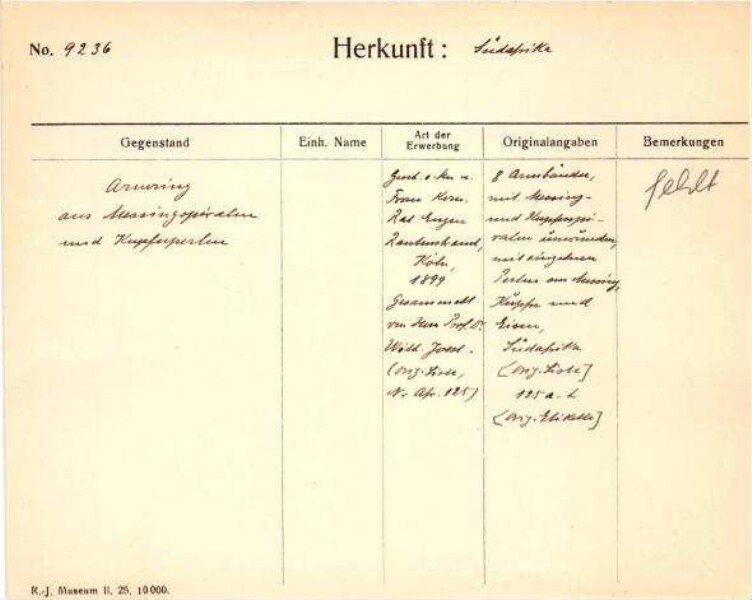 No. 9236
Herkunft: Südafrika
Gegenstand
Einh. Name
Art der Erwerbung
Originalangaben
Bemerkungen
Armring
aus Messingspiralen
und Kupferperlen
Gesch. v. Hrn u.
Frau Kom.
Rat Eugen
Rautenstrauch,
Köln,
1899
Gesammelt
von Herr Prof. Dr.
Wilh. Joest.
(Orig. Liste,
Nr. Afr. 125)
8 Armbänder,
mit Messing-
und Kupferspi-
ralen umwunden,
mit einzelnen
Perlen aus Messing,
Kupfer und
Eisen,
Südafrika
[Orig. Liste]
125 a-h
[Orig. Etikette]
fehlt
R.-J. Museum II. 25. 10000.